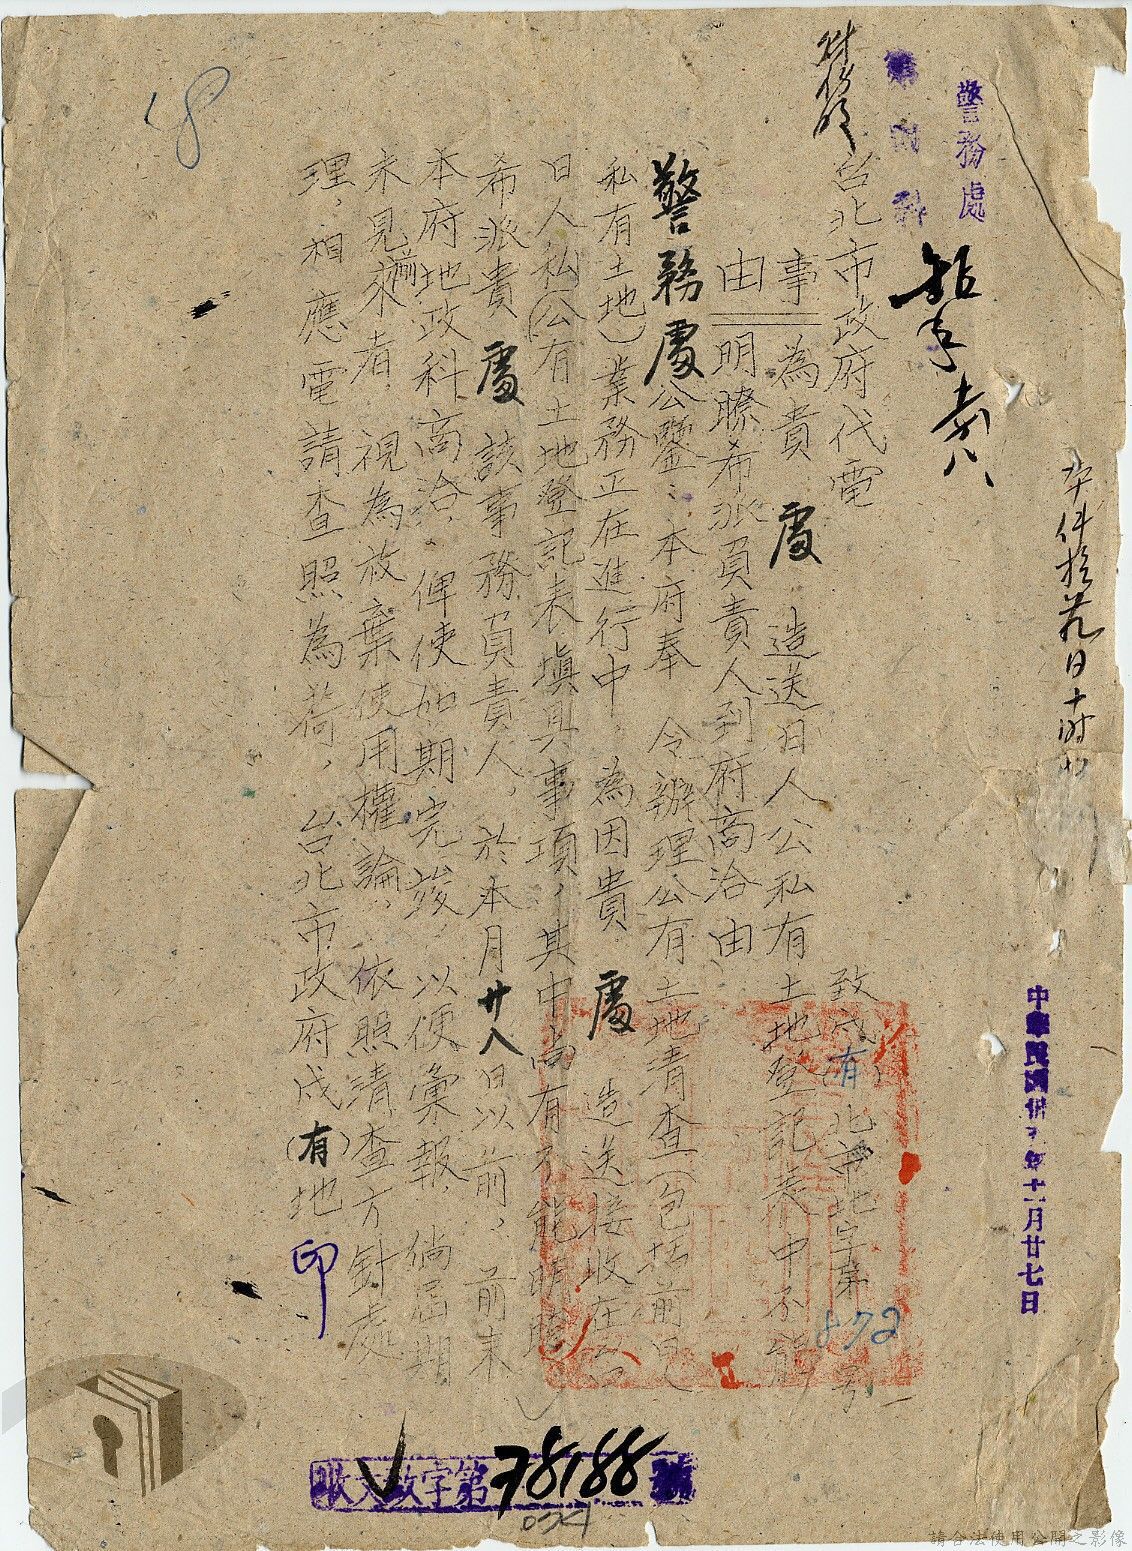 警務處
本件於
十時
中華民國卅五年十一月廿七日
台北市政府代電
致戌(有)北市地字第872號
事為貴處造送日人公私有土地登記表中不能
由明瞭希派員責人到府商洽由
警務處公鑒:本府奉令辦理公有土地清查(包括前日人
私有土地)業務正在進行中,為因貴處造送接收在台
日人私(公)有土地登記表填具事項,其中尚有不能明瞭
希派貴處該事務員責人,於本月廿八日以前,前來
本府地政科商洽,俾使如期完竣,以便彙報,倘屆期
未見來者,視為放棄使用權論,依照清查方針處
理,相應電請查照為荷,台北市政府戌(有)地印
收文 字第78188號
48
請合法使用公開之影像